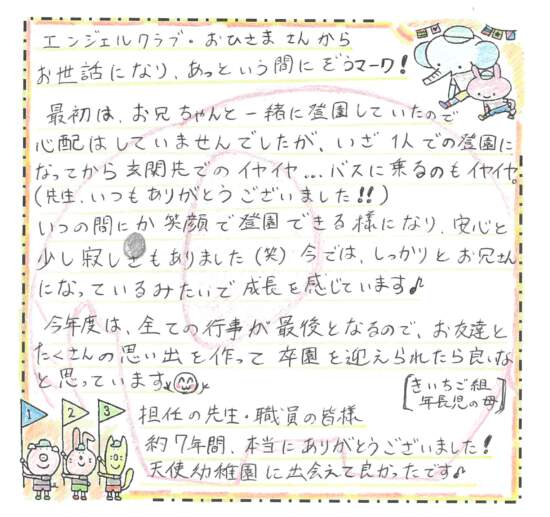 エンジェルクラブ・おひさまさんから
お世話になり、あっという間にぞうマーク!
最初は、お兄ちゃんと一緒に登園していたので
心配はしていませんでしたが、いざ1人での登園に
なってから玄関先でのイヤイヤ...バスに乗るのもイヤイヤ。
(先生、いつもありがとうございました!!)
いつの間にか笑顔で登園できる様になり、安心と
少し寂しさもありました(笑)今では、しっかりとお兄さん
になっているみたいで成長を感じています♪
今年度は、全ての行事が最後となるので、お友達と
たくさんの思い出を作って卒園を迎えられたら良いな
と思っています
[きいちご組
年長児の母]
1 2 3
担任の先生・職員の皆様
約7年間、本当にありがとうございました!
天使幼稚園に出会えて良かったです♪